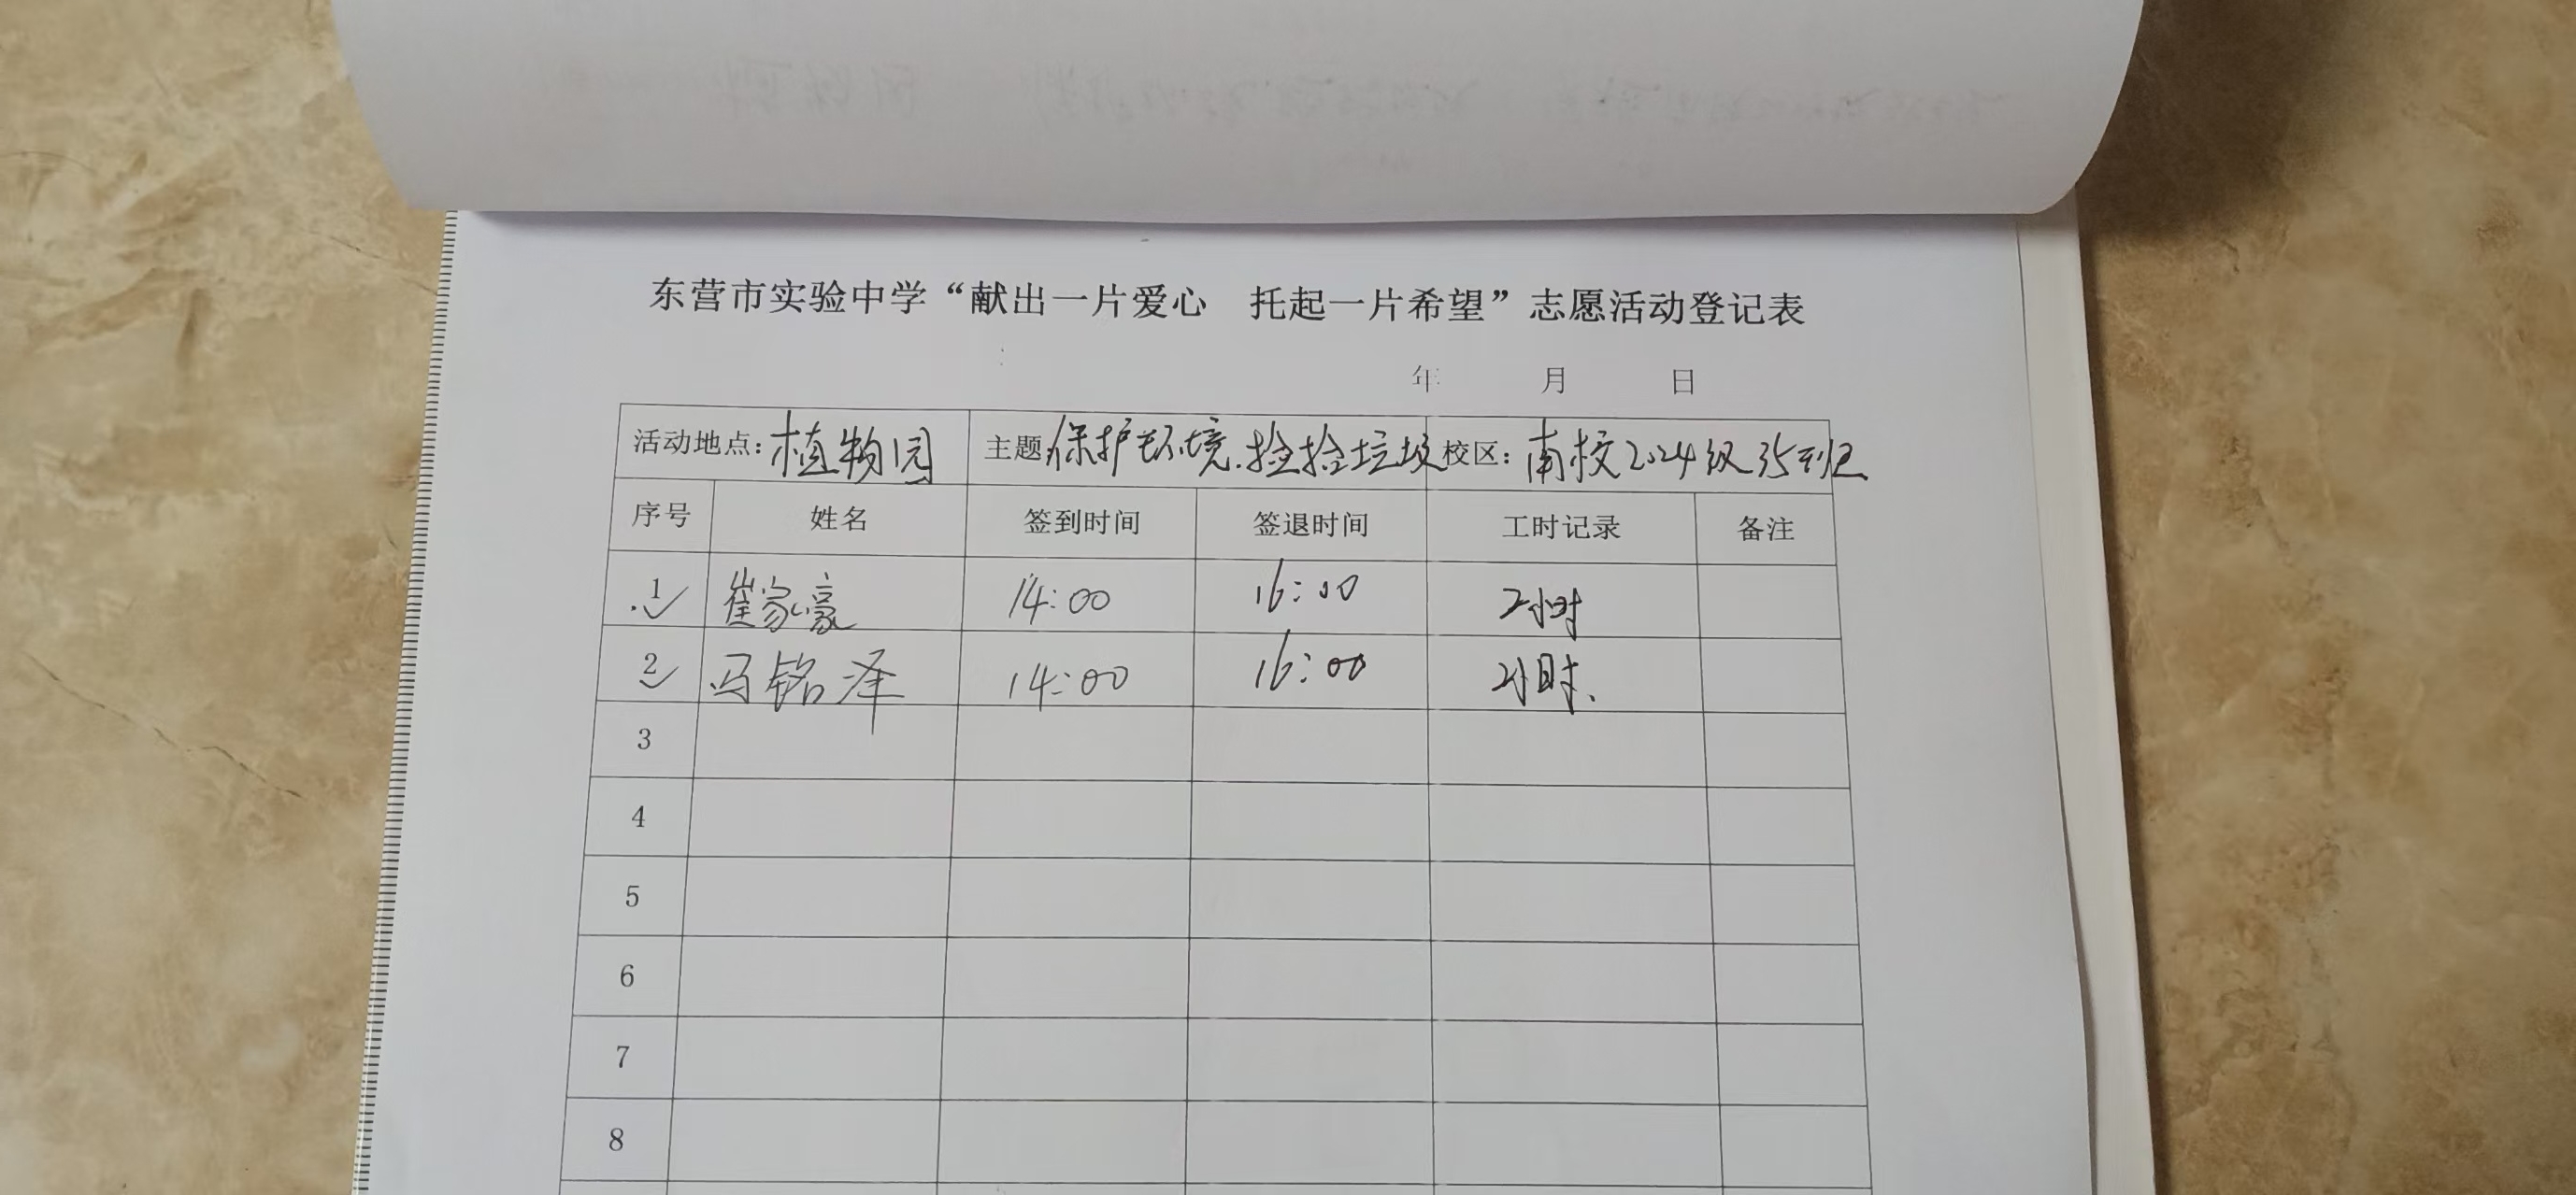 东营市实验中学“献出一片爱心 托起一片希望”志愿活动登记表
年 月 日
活动地点:植物园 主题:保护环境.捡捡垃圾 校区:南校2024级35班
序号 姓名 签到时间 签退时间 工时记录 备注
1 崔家豪 14:00 16:00 2小时
2 马铭泽 14:00 16:00 2小时、
3
4
5
6
7
8